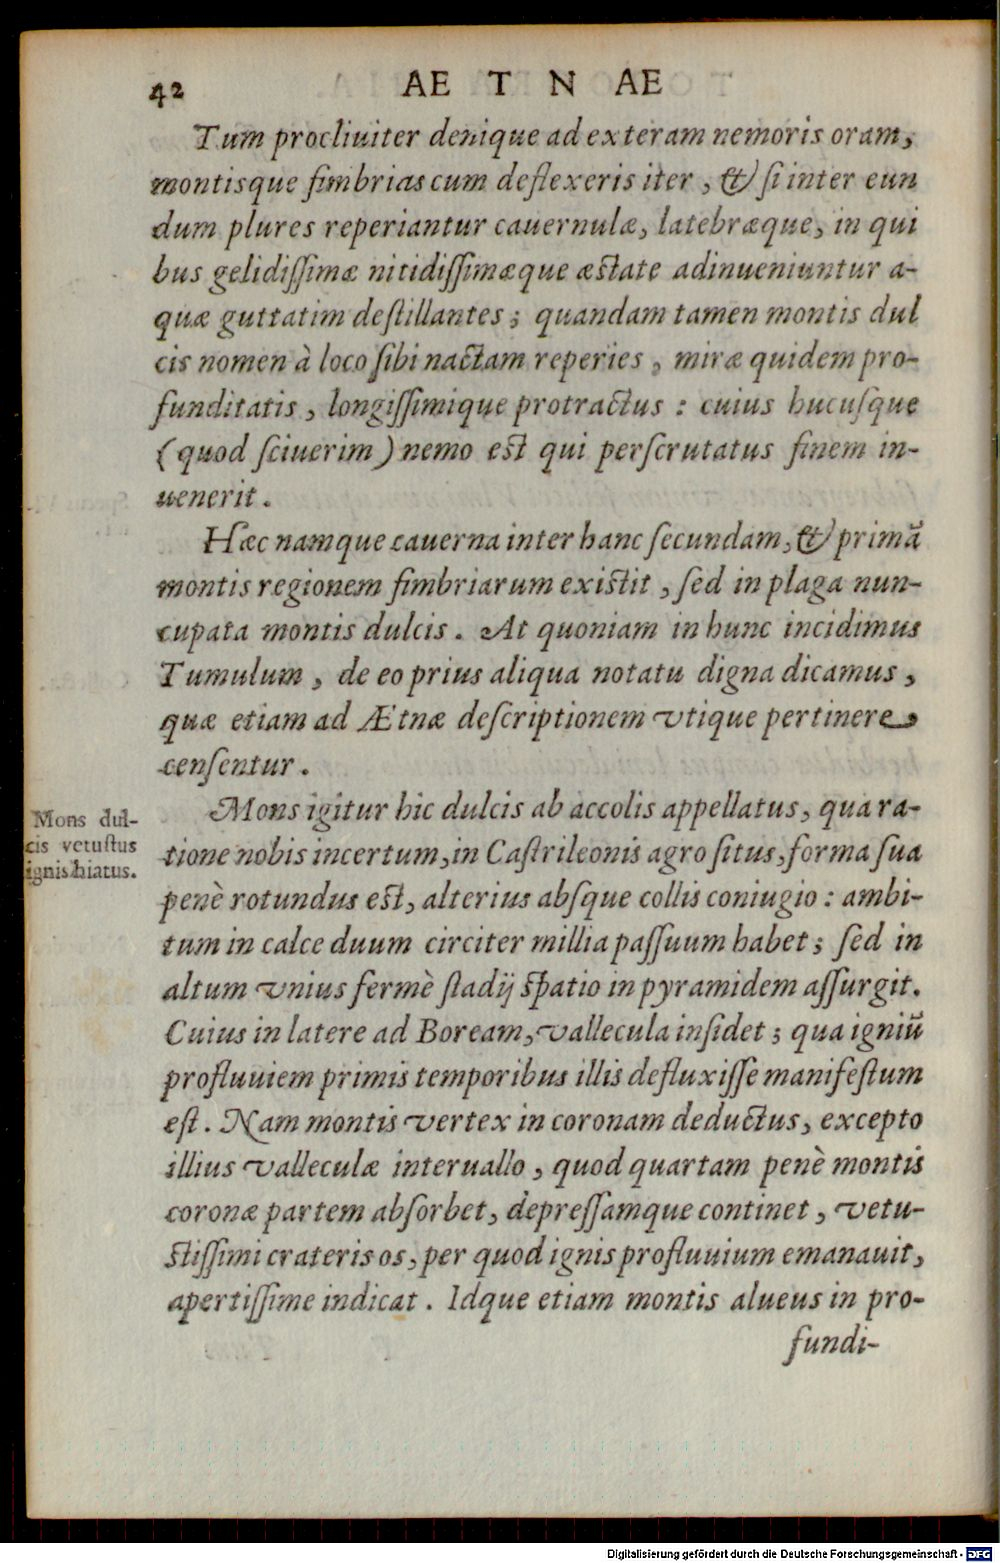 42
AE T N AE
Tum procliuiter denique ad exteram nemoris oram,
montisque fimbrias cum deflexeris iter, & si inter eun
dum plures reperiantur cauernulæ, latebræque, in qui
bus gelidissimæ nitidissimæque æstate adinueniuntur a-
quæ guttatim destillantes; quandam tamen montis dul
cis nomen à loco sibi nactam reperies, miræ quidem pro-
funditatis, longissimique protractus: cuius hucusque
(quod sciuerim) nemo est qui perscrutatus finem in-
uenerit.
Hæc namque cauerna inter hanc secundam, & primã
montis regionem fimbriarum existit, sed in plaga nun-
cupata montis dulcis. At quoniam in hunc incidimus
Tumulum, de eo prius aliqua notatu digna dicamus,
quæ etiam ad Ætnæ descriptionem vtique pertinere
censentur.
Mons igitur hic dulcis ab accolis appellatus, qua ra-
Mons dul-
cis vetustus
ignis hiatus.
tione nobis incertum, in Castrileonis agro situs, forma sua
penè rotundus est, alterius absque collis coniugio: ambi-
tum in calce duum circiter millia passuum habet; sed in
altum vnius fermè stadij spatio in pyramidem assurgit.
Cuius in latere ad Boream, vallecula insidet; qua igniũ
profluuiem primis temporibus illis defluxisse manifestum
est. Nam montis vertex in coronam deductus, excepto
illius valleculæ interuallo, quod quartam penè montis
coronæ partem absorbet, depressamque continet, vetu-
stissimi crateris os, per quod ignis profluuium emanauit,
apertissime indicat. Idque etiam montis alueus in pro-
fundi-
Digitalisierung gefördert durch die Deutsche Forschungsgemeinschaft - DFG